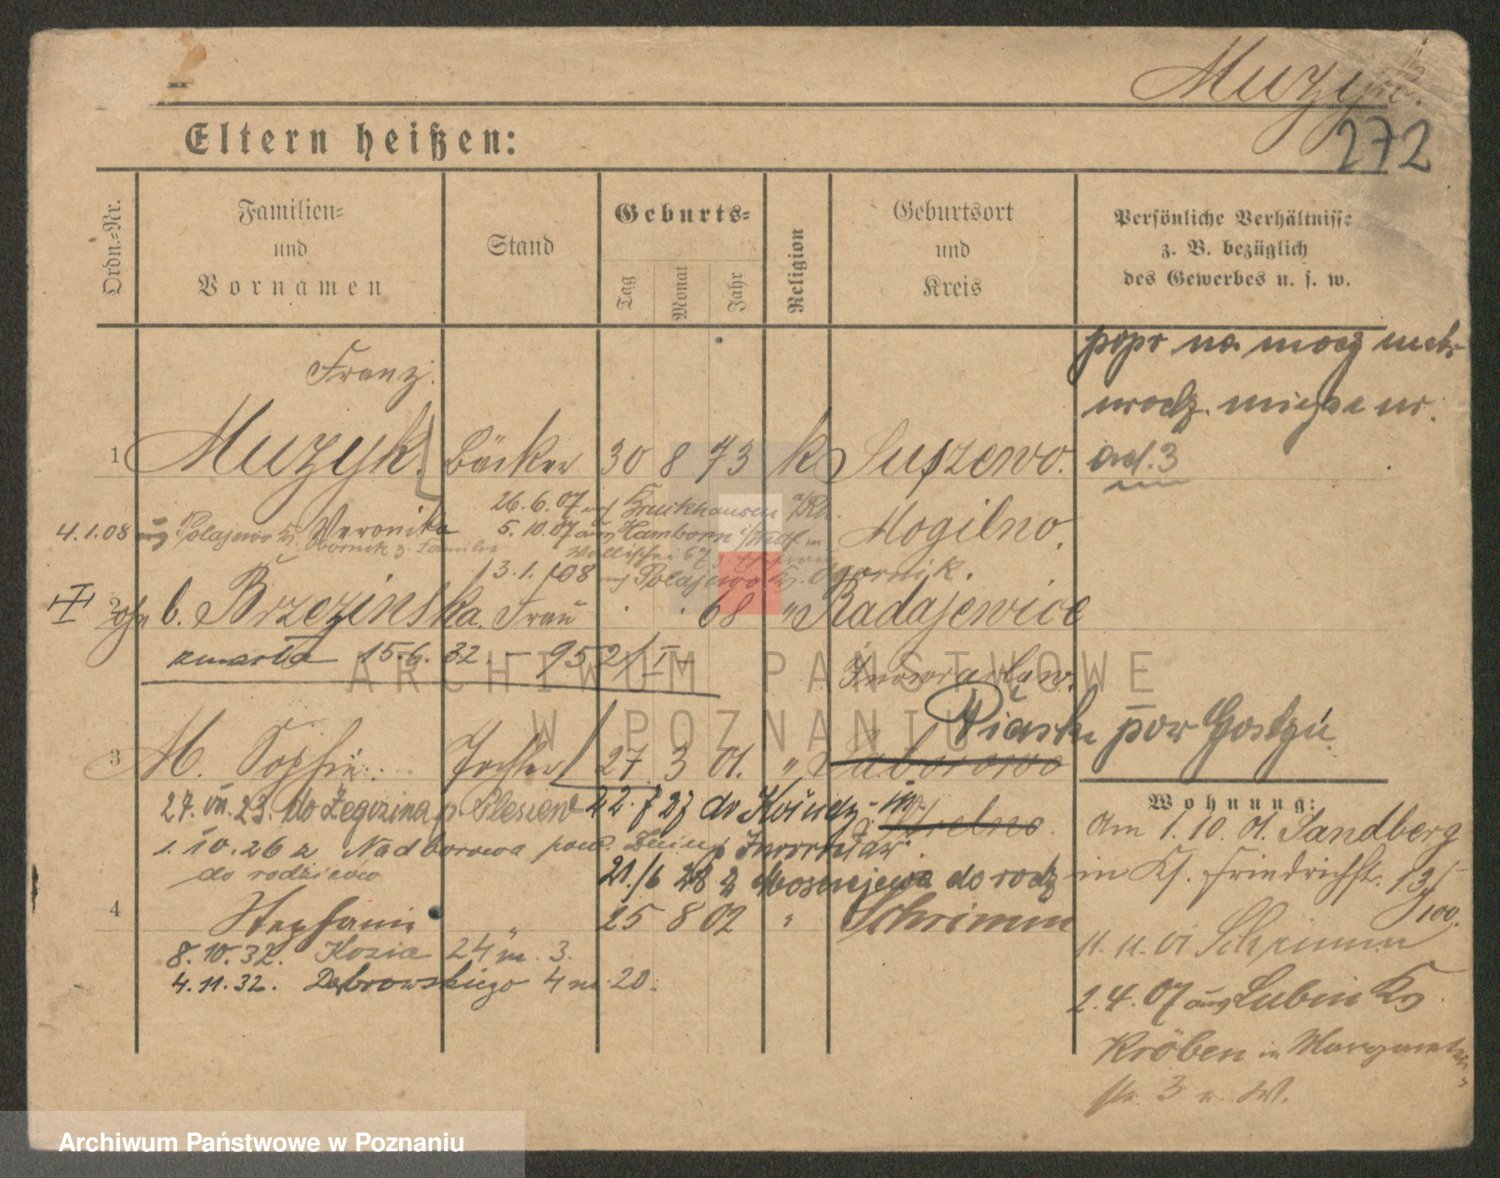 Muzyk.
272
Eltern heißen:
Ordn.-Nr.
Familien-
und
Vornamen
Stand
Geburts-
Tag
Monat
Jahr
Religion
Geburtsort
und
Kreis
Persönliche Verhältnisse
z. B. bezüglich
des Gewerbes u. s. w.
popr na mocy metr
urodz.
ad. 3
Franz.
1 Muzyk. Bäcker 30 8 73 k Suszewo.
Mogilno.
26.6.07 Bruckhausen a/Rh.
4.1.08 Polajewo Veronika 5.10.07 aus Hamborn
Obornik 3. Familie Wallischei 67
3.1.08 Polajewo Obornik.
2 b. Brzezinska. Frau 68 " Radajewice
zmarła 15.6.32. - 952/I
Inowrazlaw.
Piaski pow Gostyń
3 M. Sophie. Tochter 27 3 01. " Zaborowo
27.VII.23. do Żegocina p. Pleszew 22.7.27
Schrimm
1.10.26 z Nadborowa pow. Żnin
do rodziców
21./6 28 z do rodz
4 Stephanie " 25 8 02 " Schrimm
8.10.32. Kozia 24 m. 3.
4.11.32. Dąbrowskiego 4 m. 20.
Wohnung:
Am 1.10.01. Sandberg
in Ks. Friedrichst. 13/
100.
11.11.01 Schrimm
2.4.07 aus Lubin Ks
Kröben in Margareten
str 3 v. W.
ARCHIWUM PAŃSTWOWE
W POZNANIU
Archiwum Państwowe w Poznaniu